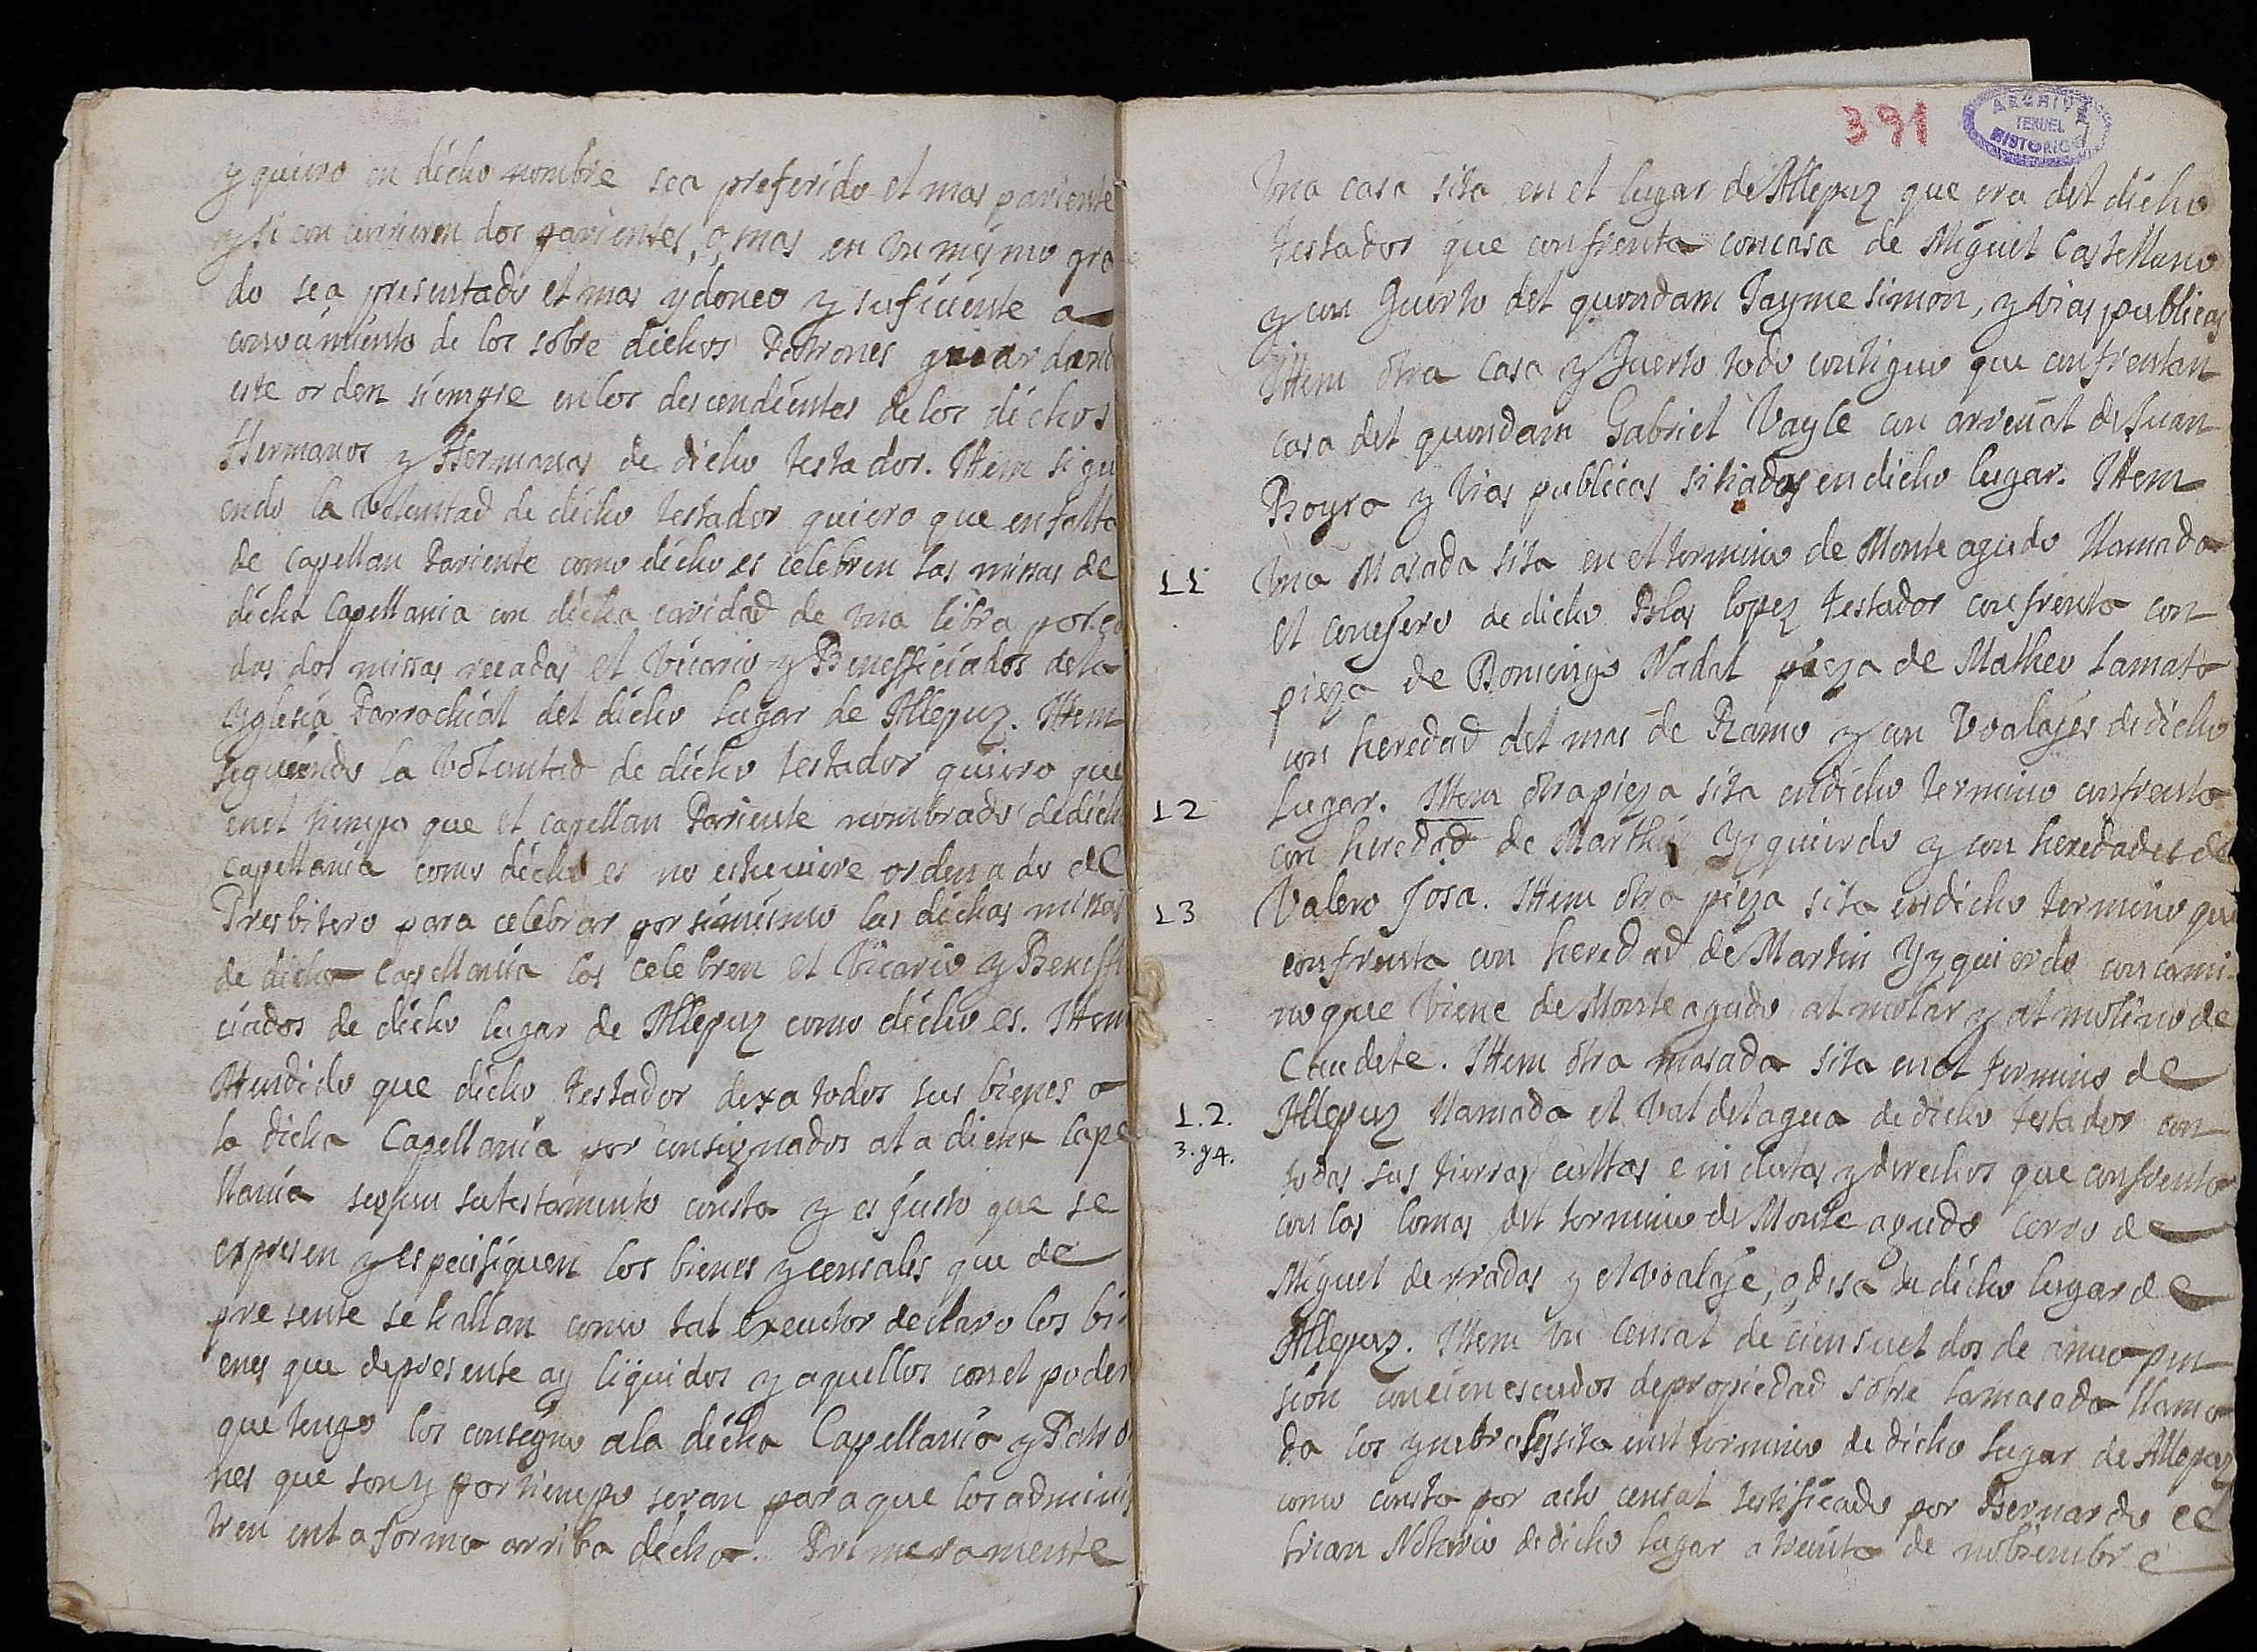 y quiero en dicho nombre sea preferido el mas pariente
y si concurrieren dos parientes, o, mas en un mismo gra
do sea presentado el mas ydoneo y suficiente a
conocimiento de los sobre dichos Patrones guardand
este orden siempre en los descendientes de los dichos
Hermanos y Hermanas de dicho testador. Ittem sigui
endo la voluntad de dicho testador quiero que en falta
de Capellan Pariente como dicho es celebren las missas de
dicha Capellania con dicha caridad de una libra por ca
das dos missas recadas el Vicario y Benefficiados dela
Yglesia Parrochial del dicho lugar de Allepuz. Ittem
siguiendo la voluntad de dicho testador quiero que
en el tiempo que el capellan Pariente nombrado de dich
capellania como dicho es no estuviere ordenado de
Presbitero para celebrar por simismo las dichas missas
de dicha Capellania las celebren el Vicario y Beneffi
ciados de dicho lugar de Allepuz como dicho es. Ittem
Attendido que dicho testador dexa todos sus bienes a
la dicha Capellania por consignados ala dicha Cape
llania segun su testamento consta y es justo que se
expresen y especifiquen los bienes y censales que de
presente se hallan como tal executor declaro los bi
enes que de presente ay liquidos y aquellos con el poder
que tengo los consigno ala dicha Capellania y Patro
nes que son y por tiempo seran para que los adminis
tren en la forma arriba dicha. Primeramente
391
ARCHIVO
TERUEL
HISTORICO
Una casa sita en el lugar de Allepuz que era del dicho
testador que confrenta con casa de Miguel Castellano
y con Guerto del quondam Jayme simon, y vias publicas
Ittem otra casa y Guerto todo contiguo que confrentan
casa del quondam Gabriel Vayle con arreñal de Juan
Royra y vias publicas sitiadas en dicho lugar. Ittem
11 Una Masada sita en el termino de Monteagudo llamada
el conejero de dicho Blas lopez testador confrenta con
pieza de Domingo Nadal pieza de Matheo Lamata
con heredad del mas de Ramo y con Voalajes de dicho
12 lugar. Ittem otra pieza sita en dicho termino confrenta
con heredad de Marthin Yzquierdo y con heredades de
13 Valero Josa. Ittem otra pieza sita en dicho termino que
confrenta con heredad de Martin Yzquierdo con cami-
no que viene de Monteagudo al molar y al molino de
Caudete. Ittem otra masada sita en el termino de
1.2. Allepuz llamada el Val del agua de dicho testador con
3. y 4. todas sus tierras cultas e incultas y derechos que confrenta
con las lomas del termino de Monte agudo cerro de
Miguel de rradas y el voalaje, o, desa de dicho lugar de
Allepuz. Ittem un censal de cien sueldos de anua pen
sion con cien escudos de propiedad sobre la masada llama
da los ynebrales sita en el termino de dicho lugar de Allepuz
como consta por acto censal testificado por Bernardo ce
brian Notario de dicho lugar a treinta de nobiembre